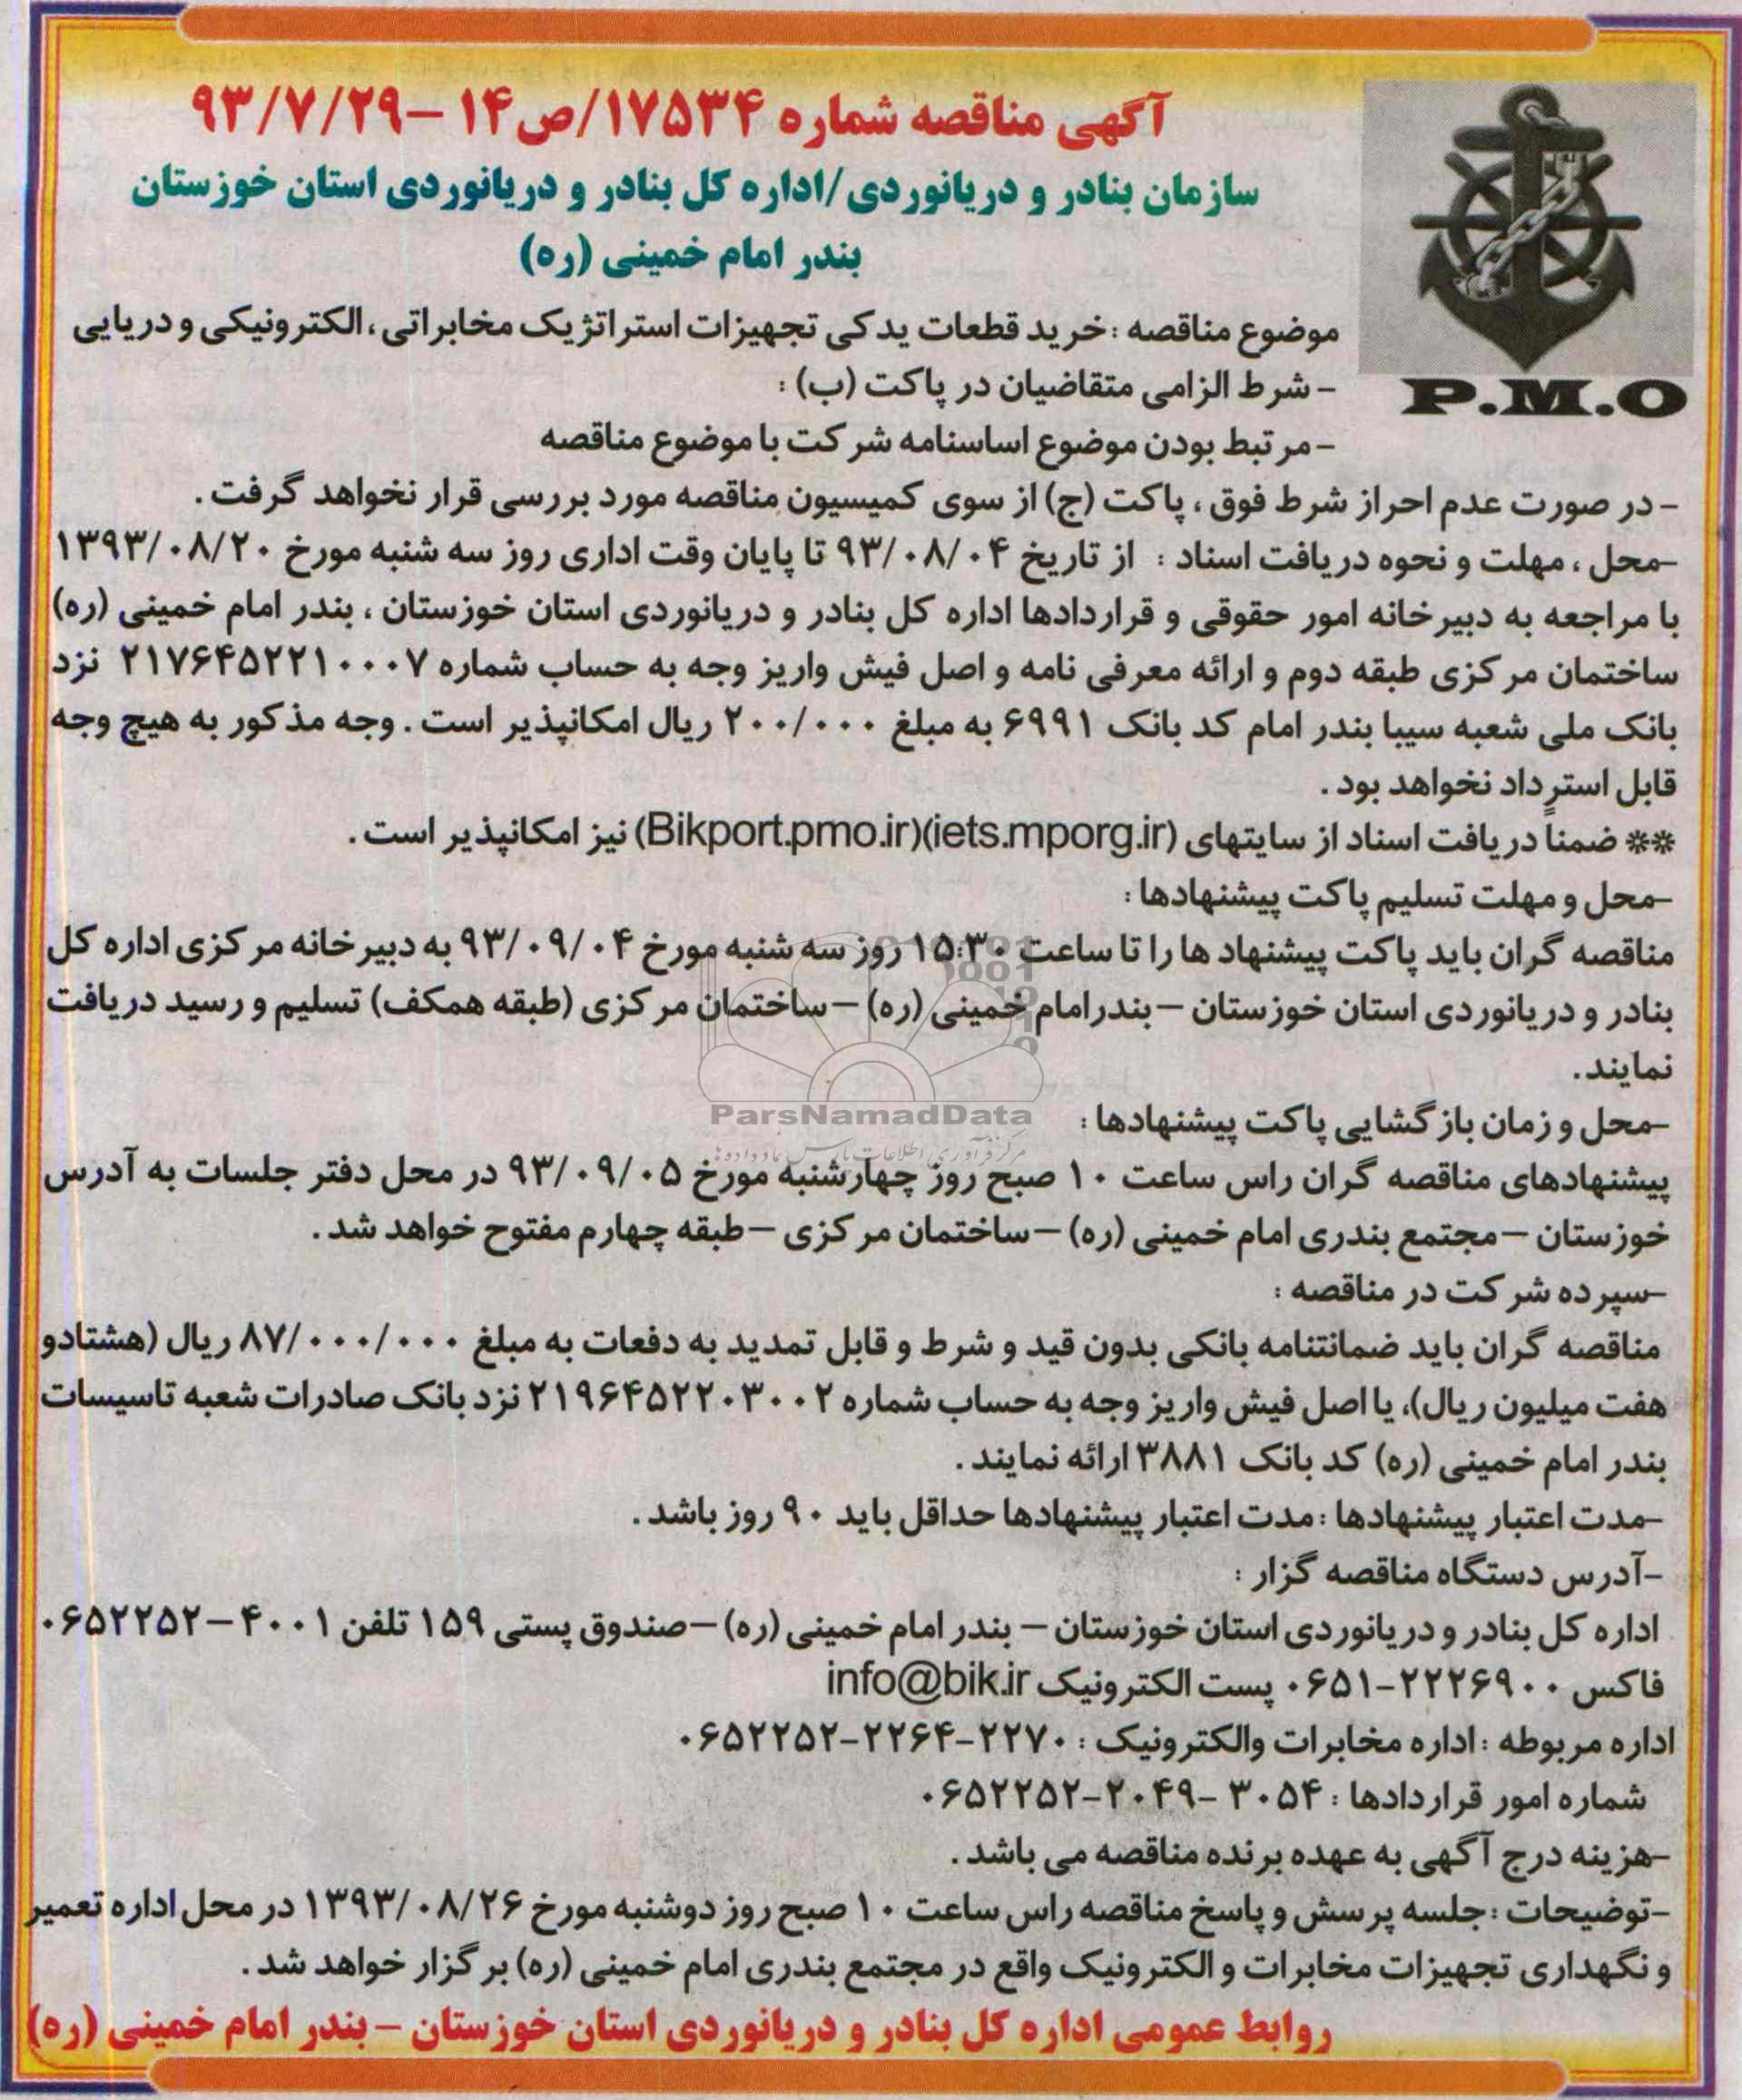 آگهی مناقصه شماره ۱۷۵۳۴/ص۱۴ –۹۳/۷/۲۹
سازمان بنادر و دریانوردی/اداره کل بنادر و دریانوردی استان خوزستان
بندر امام خمینی (ره)
P.M.O
موضوع مناقصه : خرید قطعات یدکی تجهیزات استراتژیک مخابراتی ، الکترونیکی و دریایی
- شرط الزامی متقاضیان در پاکت (ب) :
- مرتبط بودن موضوع اساسنامه شرکت با موضوع مناقصه
- در صورت عدم احراز شرط فوق ، پاکت (ج) از سوی کمیسیون مناقصه مورد بررسی قرار نخواهد گرفت .
-محل ، مهلت و نحوه دریافت اسناد : از تاریخ ۹۳/۰۸/۰۴ تا پایان وقت اداری روز سه شنبه مورخ ۱۳۹۳/۰۸/۲۰
با مراجعه به دبیرخانه امور حقوقی و قراردادها اداره کل بنادر و دریانوردی استان خوزستان ، بندر امام خمینی (ره)
ساختمان مرکزی طبقه دوم و ارائه معرفی نامه و اصل فیش واریز وجه به حساب شماره ۲۱۷۶۴۵۲۲۱۰۰۰۷ نزد
بانک ملی شعبه سیبا بندر امام کد بانک ۶۹۹۱ به مبلغ ۲۰۰/۰۰۰ ریال امکانپذیر است . وجه مذکور به هیچ وجه
قابل استرداد نخواهد بود .
** ضمناً دریافت اسناد از سایتهای (iets.mporg.ir)(Bikport.pmo.ir) نیز امکانپذیر است .
-محل و مهلت تسلیم پاکت پیشنهادها :
مناقصه گران باید پاکت پیشنهاد ها را تا ساعت ۱۵:۳۰ روز سه شنبه مورخ ۹۳/۰۹/۰۴ به دبیرخانه مرکزی اداره کل
بنادر و دریانوردی استان خوزستان – بندرامام خمینی (ره) – ساختمان مرکزی (طبقه همکف) تسلیم و رسید دریافت
نمایند.
ParsNamadData
مرکز فرآوری اطلاعات پارس نماد داده ها
-محل و زمان بازگشایی پاکت پیشنهادها :
پیشنهادهای مناقصه گران راس ساعت ۱۰ صبح روز چهارشنبه مورخ ۹۳/۰۹/۰۵ در محل دفتر جلسات به آدرس
خوزستان – مجتمع بندری امام خمینی (ره) – ساختمان مرکزی – طبقه چهارم مفتوح خواهد شد .
-سپرده شرکت در مناقصه :
مناقصه گران باید ضمانتنامه بانکی بدون قید و شرط و قابل تمدید به دفعات به مبلغ ۸۷/۰۰۰/۰۰۰ ریال (هشتادو
هفت میلیون ریال)، یا اصل فیش واریز وجه به حساب شماره ۲۱۹۶۴۵۲۲۰۳۰۰۲ نزد بانک صادرات شعبه تاسیسات
بندر امام خمینی (ره) کد بانک ۳۸۸۱ ارائه نمایند .
-مدت اعتبار پیشنهادها : مدت اعتبار پیشنهادها حداقل باید ۹۰ روز باشد .
-آدرس دستگاه مناقصه گزار :
اداره کل بنادر و دریانوردی استان خوزستان – بندر امام خمینی (ره) – صندوق پستی ۱۵۹ تلفن ۴۰۰۱–۰۶۵۲۲۵۲
فاکس ۲۲۲۶۹۰۰-۰۶۵۱ پست الکترونیک info@bik.ir
اداره مربوطه : اداره مخابرات والکترونیک : ۲۲۷۰-۲۲۶۴-۰۶۵۲۲۵۲
شماره امور قراردادها : ۳۰۵۴ -۲۰۴۹-۰۶۵۲۲۵۲
-هزینه درج آگهی به عهده برنده مناقصه می باشد .
-توضیحات : جلسه پرسش و پاسخ مناقصه راس ساعت ۱۰ صبح روز دوشنبه مورخ ۱۳۹۳/۰۸/۲۶ در محل اداره تعمیر
و نگهداری تجهیزات مخابرات و الکترونیک واقع در مجتمع بندری امام خمینی (ره) برگزار خواهد شد .
روابط عمومی اداره کل بنادر و دریانوردی استان خوزستان – بندر امام خمینی (ره)